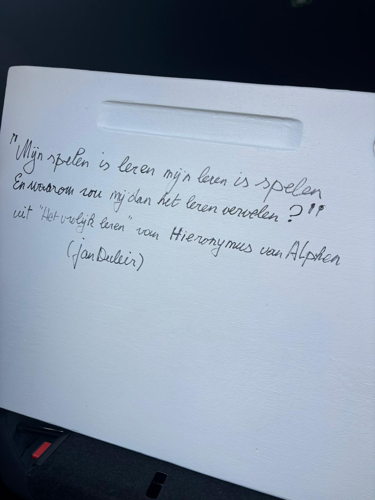 "Mijn spelen is leren mijn leren is spelen
En waarom zou mij dan het leren vervelen?"
uit "Het vrolijk leren" van Hieronymus van Alphen
(jan Duleir)